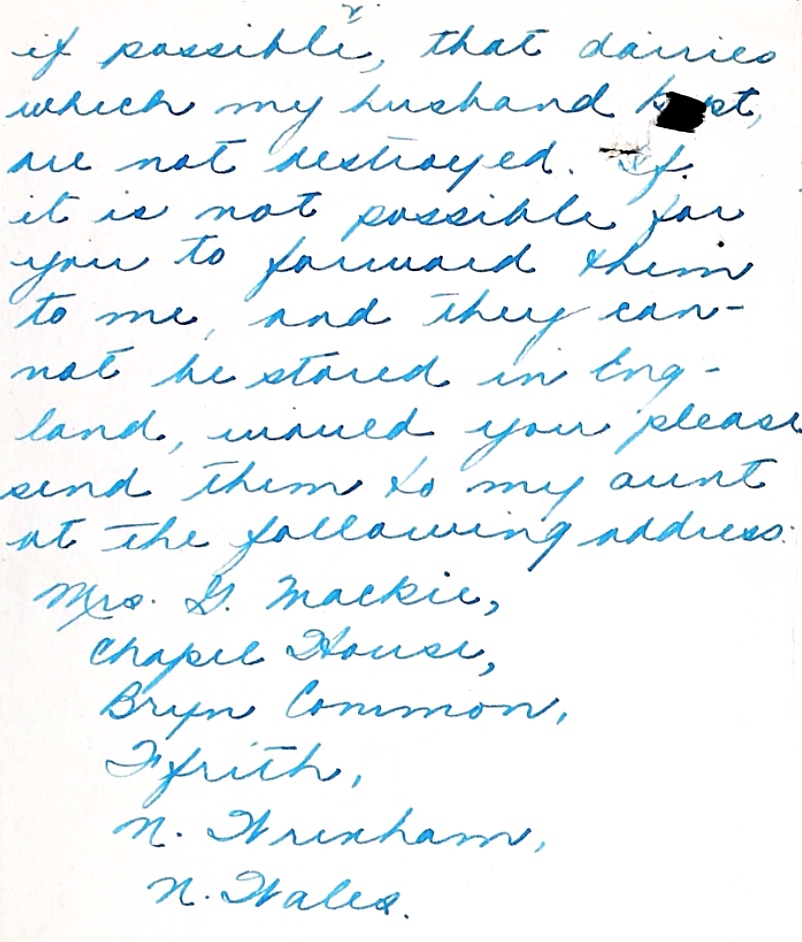 if possible, that dairies
which my husband kept,
are not destroyed. If
it is not possible for
you to forward them
to me, and they can-
not be stored in Eng-
land, would you please
send them to my aunt
at the following address.
Mrs. G. Mackie,
Chapel House,
Bryn Common,
Ffrith,
N. Wrexham,
N. Wales.